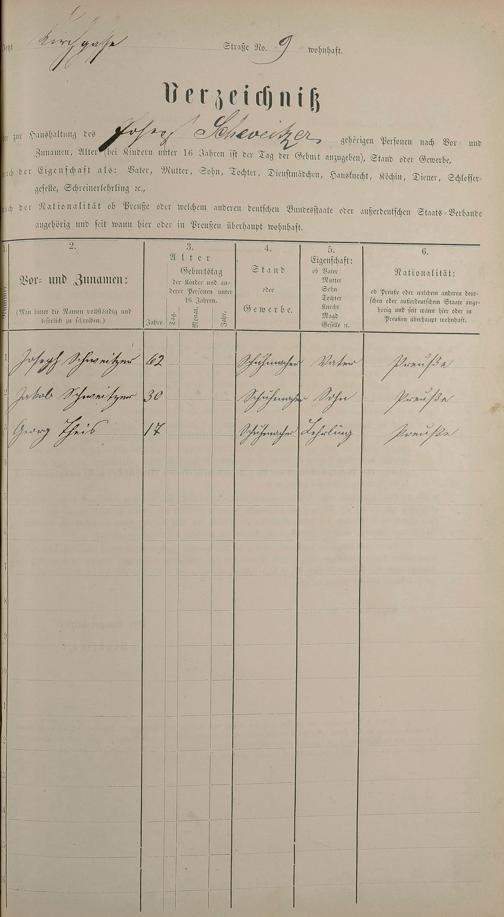 Kirchgasse Straße No. 9 wohnhaft.
Verzeichniß
zur Haushaltung des Joseph Schweitzer gehörigen Personen nach Vor- und
Zunamen, Alter (bei Kindern unter 16 Jahren ist der Tag der Geburt anzugeben), Stand oder Gewerbe,
nach der Eigenschaft als: Vater, Mutter, Sohn, Tochter, Dienstmädchen, Hausknecht, Köchin, Diener, Schlosser-
geselle, Schreinerlehrling ꝛc.,
nach der Nationalität ob Preuße oder welchem anderen deutschen Bundesstaate oder außerdeutschen Staats-Verbande
angehörig und seit wann hier oder in Preußen überhaupt wohnhaft.
2. 3. 4. 5. 6.
Vor- und Zunamen:
(Man bittet die Namen vollständig und
leserlich zu schreiben.)
Alter
Geburtstag
der Kinder und an-
derer Personen unter
16 Jahren.
Jahre. Tag. Monat. Jahr.
Stand
oder
Gewerbe.
Eigenschaft:
ob Vater
Mutter
Sohn
Tochter
Knecht
Magd
Geselle ꝛc.
Nationalität:
ob Preuße oder welchem anderen deut-
schen oder außerdeutschen Staate ange-
hörig und seit wann hier oder in
Preußen überhaupt wohnhaft.
1 Joseph Schweitzer 62 Schuhmacher Vater Preuße
2 Jakob Schweitzer 30 Schuhmacher Sohn Preuße
3 Georg Theis 17 Schuhmacher Lehrling Preuße